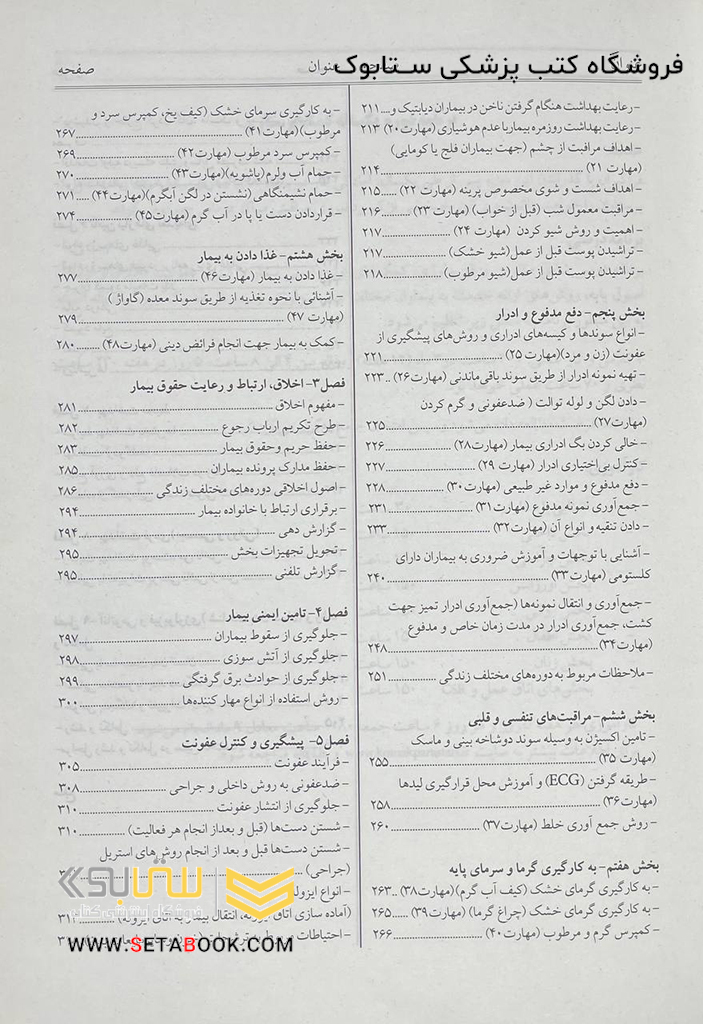 فروشگاه کتب پزشکی ستابوک
عنوان
صفحه
- رعایت بهداشت هنگام گرفتن ناخن در بیماران دیابتیک و.... ۲۱۱
- رعایت بهداشت روزمره بیماربا عدم هوشیاری (مهارت ۲۰) ۲۱۳
- اهداف مراقبت از چشم (جهت بیماران فلج یا کومایی)
(مهارت ۲۱) ۲۱۴
- اهداف شست و شوی مخصوص پرینه (مهارت ۲۲) ۲۱۵
- مراقبت معمول شب (قبل از خواب) (مهارت ۲۳) ۲۱۶
- اهمیت و روش شیو کردن (مهارت ۲۴) ۲۱۷
- تراشیدن پوست قبل از عمل(شیو خشک) ۲۱۷
- تراشیدن پوست قبل از عمل(شیو مرطوب) ۲۱۸
بخش پنجم- دفع مدفوع و ادرار
- انواع سوندها و کیسه‌های ادراری و روش‌های پیشگیری از
عفونت (زن و مرد)(مهارت ۲۵) ۲۲۱
- تهیه نمونه ادرار از طریق سوند باقی‌ماندنی (مهارت۲۶) .. ۲۲۳
- دادن لگن و لوله توالت ( ضدعفونی و گرم کردن
(مهارت۲۷) ۲۲۵
- خالی کردن بگ ادراری بیمار (مهارت۲۸) ۲۲۶
- کنترل بی‌اختیاری ادرار (مهارت ۲۹) ۲۲۷
- دفع مدفوع و موارد غیر طبیعی (مهارت۳۰) ۲۲۸
- جمع‌آوری نمونه مدفوع (مهارت۳۱) ۲۳۱
- دادن تنقیه و انواع آن (مهارت۳۲) ۲۳۳
- آشنایی با توجهات و آموزش ضروری به بیماران دارای
کلستومی (مهارت۳۳) ۲۴۰
- جمع‌آوری و انتقال نمونه‌ها (جمع‌آوری ادرار تمیز جهت
کشت، جمع‌آوری ادرار در مدت زمان خاص و مدفوع
(مهارت۳۴) ۲۴۸
- ملاحظات مربوط به دوره‌های مختلف زندگی ۲۵۱
بخش ششم- مراقبت‌های تنفسی و قلبی
- تامین اکسیژن به وسیله سوند دوشاخه بینی و ماسک
(مهارت ۳۵) ۲۵۵
- طریقه گرفتن (ECG) و آموزش محل قرارگیری لیدها
(مهارت۳۶) ۲۵۸
- روش جمع آوری خلط (مهارت۳۷) ۲۶۰
بخش هفتم- به کارگیری گرما و سرمای پایه
- به کارگیری گرمای خشک (کیف آب گرم)(مهارت۳۸) .. ۲۶۳
- به کارگیری گرمای خشک (چراغ گرما) (مهارت۳۹) ۲۶۵
- کمپرس گرم و مرطوب (مهارت۴۰) ۲۶۶
- به کارگیری سرمای خشک (کیف یخ، کمپرس سرد و
مرطوب)(مهارت۴۱) ۲۶۷
- کمپرس سرد مرطوب (مهارت۴۲) ۲۶۹
- حمام آب ولرم (پاشویه)(مهارت۴۳) ۲۷۰
- حمام نشیمنگاهی (نشستن در لگن آبگرم)(مهارت۴۴) ۲۷۱
- قراردادن دست یا پا در آب گرم (مهارت۴۵) ۲۷۴
بخش هشتم- غذا دادن به بیمار
- غذا دادن به بیمار (مهارت۴۶) ۲۷۷
- آشنائی با نحوه تغذیه از طریق سوند معده (گاواژ )
(مهارت ۴۷) ۲۷۹
- کمک به بیمار جهت انجام فرائض دینی (مهارت۴۸) ۲۸۰
فصل۳- اخلاق، ارتباط و رعایت حقوق بیمار
- مفهوم اخلاق ۲۸۱
- طرح تکریم ارباب رجوع ۲۸۲
- حفظ حریم وحقوق بیمار ۲۸۳
- حفظ مدارک پرونده بیماران ۲۸۵
- اصول اخلاقی دوره‌های مختلف زندگی ۲۸۶
- برقراری ارتباط با خانواده بیمار ۲۹۴
- گزارش دهی ۲۹۴
- تحویل تجهیزات بخش ۲۹۵
- گزارش تلفنی ۲۹۵
فصل۴- تامین ایمنی بیمار
- جلوگیری از سقوط بیماران ۲۹۷
- جلوگیری از آتش سوزی ۲۹۸
- جلوگیری از حوادث برق گرفتگی ۲۹۹
- روش استفاده از انواع مهار کننده‌ها ۳۰۰
فصل۵- پیشگیری و کنترل عفونت
- فرآیند عفونت ۳۰۵
- ضدعفونی به روش داخلی و جراحی ۳۰۸
- جلوگیری از انتشار عفونت ۳۱۰
- شستن دست‌ها (قبل و بعداز انجام هر فعالیت) ۳۱۰
- شستن دست‌ها قبل و بعد از انجام روش‌های استریل
(جراحی)
- انواع ایزوله
(آماده سازی اتاق ایزوله، انتقال بیمار به اتاق ایزوله)
- احتیاطات
ستابوک
فروشگاه اینترنتی کتاب
WWW.SETABOOK.COM